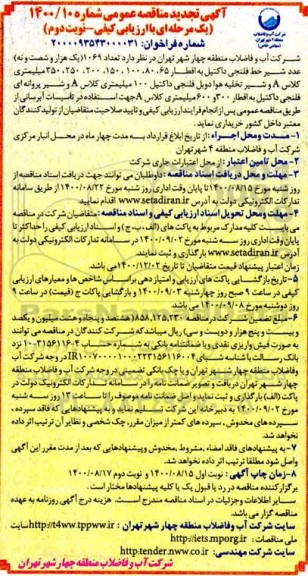 آگهی تجدید مناقصه عمومی شماره ۱۴۰۰/۱۰
(یک مرحله ای با ارزیابی کیفی-نوبت دوم)
شماره فراخوان: ۲۰۰۰۰۹۳۵۴۳۰۰۰۰۳۱
شرکت آب و فاضلاب منطقه چهار شهر تهران در نظر دارد تعداد ۱۰۶۹ (یک هزار و شصت و نه)
عدد شیر خط فلنجی داکتیل به اقطار ۶۵، ۸۰، ۱۰۰، ۱۵۰، ۲۰۰، ۲۵۰، ۳۵۰ میلیمتری
کلاس A و شیر تخلیه هوا دوبل فلنجی داکتیل ۱۰۰ میلیمتری کلاس A و شیر پروانه ای
فلنجی داکتیل به اقطار ۳۰۰ و ۶۰۰ میلیمتری کلاس A جهت استفاده در تأسیسات آبرسانی از
طریق مناقصه عمومی پس از انجام فرایند ارزیابی کیفی و تایید صلاحیت متقاضیان از تولیدکنندگان
معتبر داخل کشور خریداری نماید.
۱-مدت و محل اجراء: از تاریخ ابلاغ قرارداد به مدت چهار ماه در محل انبار مرکزی
شرکت آب و فاضلاب منطقه ۴ شهر تهران
۲-محل تامین اعتبار: از محل اعتبارات جاری شرکت
۳- مهلت و محل دریافت اسناد مناقصه: داوطلبان می توانند جهت دریافت اسناد مناقصه از
روز شنبه مورخ ۱۴۰۰/۰۸/۱۵ تا پایان وقت اداری روز شنبه مورخ ۱۴۰۰/۰۸/۲۲ از طریق سامانه
تدارکات الکترونیکی دولت به آدرس www.setadiran.ir اقدام نمایند.
۴- مهلت و محل تحویل اسناد ارزیابی کیفی و اسناد مناقصه: متقاضیان شرکت در مناقصه
می بایست کلیه مدارک مربوط به پاکت های (الف، ب، ج) و اسناد ارزیابی کیفی را حداکثر تا
پایان وقت اداری روز سه شنبه مورخ ۱۴۰۰/۰۹/۰۲ در سامانه تدارکات الکترونیکی دولت به
آدرس www.setadiran.ir بارگذاری و ثبت نمایند.
زمان اعتبار پیشنهاد قیمت متقاضیان تا تاریخ ۱۴۰۰/۱۲/۰۲ می باشد.
۵-تاریخ بازگشایی پاکت های ارزیابی و امتیازدهی براساس شاخص ها و معیارهای ارزیابی
کیفی در ساعت ۹ صبح روز چهارشنبه مورخ ۱۴۰۰/۰۹/۰۳ و بازگشایی پاکات ج (قیمت) در ساعت ۹
روز دوشنبه مورخ ۱۴۰۰/۰۹/۰۸ می باشد.
۶-مبلغ تضمین شرکت در مناقصه ۸۵۸,۱۲۵,۲۳۰ (هشتصد و پنجاه و هشت میلیون و یکصد
و بیست و پنج هزار و دویست و سی) ریال میباشد که شرکت کنندگان در مناقصه می توانند
به صورت فیش واریزی نقدی و یا ضمانتنامه بانکی به شماره حساب
بانک رسالت با شناسه شبای در وجه شرکت آب
وفاضلاب منطقه چهار شهر تهران و یا چک بانکی تضمینی در وجه شرکت آب و فاضلاب منطقه
چهار شهر تهران دریافت و تصویر ضمانت نامه را در سامانه تدارکات الکترونیک دولت در
پاکت (الف) بارگذاری و ثبت نماید و اصل ضمانت نامه موصوف را تا ساعت ۱۳ روز سه شنبه
مورخ ۱۴۰۰/۰۹/۰۲ به دبیرخانه این شرکت تسلیم نماید و به پیشنهادهایی که فاقد سپرده،
سپرده های مخدوش، سپرده های کمتر از میزان مقرر، چک شخصی و نظایر آن ترتیب اثر داده
نخواهد شد.
۷-به پیشنهادهای فاقد امضاء، مشروط، مخدوش و پیشنهادهایی که بعد از مدت مقرر این آگهی
واصل شود مطلقا ترتیب اثر داده نخواهد شد.
۸-زمان چاپ آگهی: نوبت اول ۱۴۰۰/۰۸/۱۵ و نوبت دوم ۱۴۰۰/۰۸/۱۷
برگزارکننده مناقصه در رد یا قبول یک یا کلیه پیشنهادها مختار است.
سایر اطلاعات و جزئیات در اسناد مناقصه مندرج است. هزینه درج آگهی روزنامه به عهده
مناقصه گزار می باشد.
سایت شرکت آب و فاضلاب منطقه چهار شهر تهران: http://t4ww.tppww.ir سایت
ملی مناقصات: http://iets.mporg.ir
سایت شرکت مهندسی: http:tender.nww.co.ir
شرکت آب و فاضلاب منطقه چهار شهر تهران